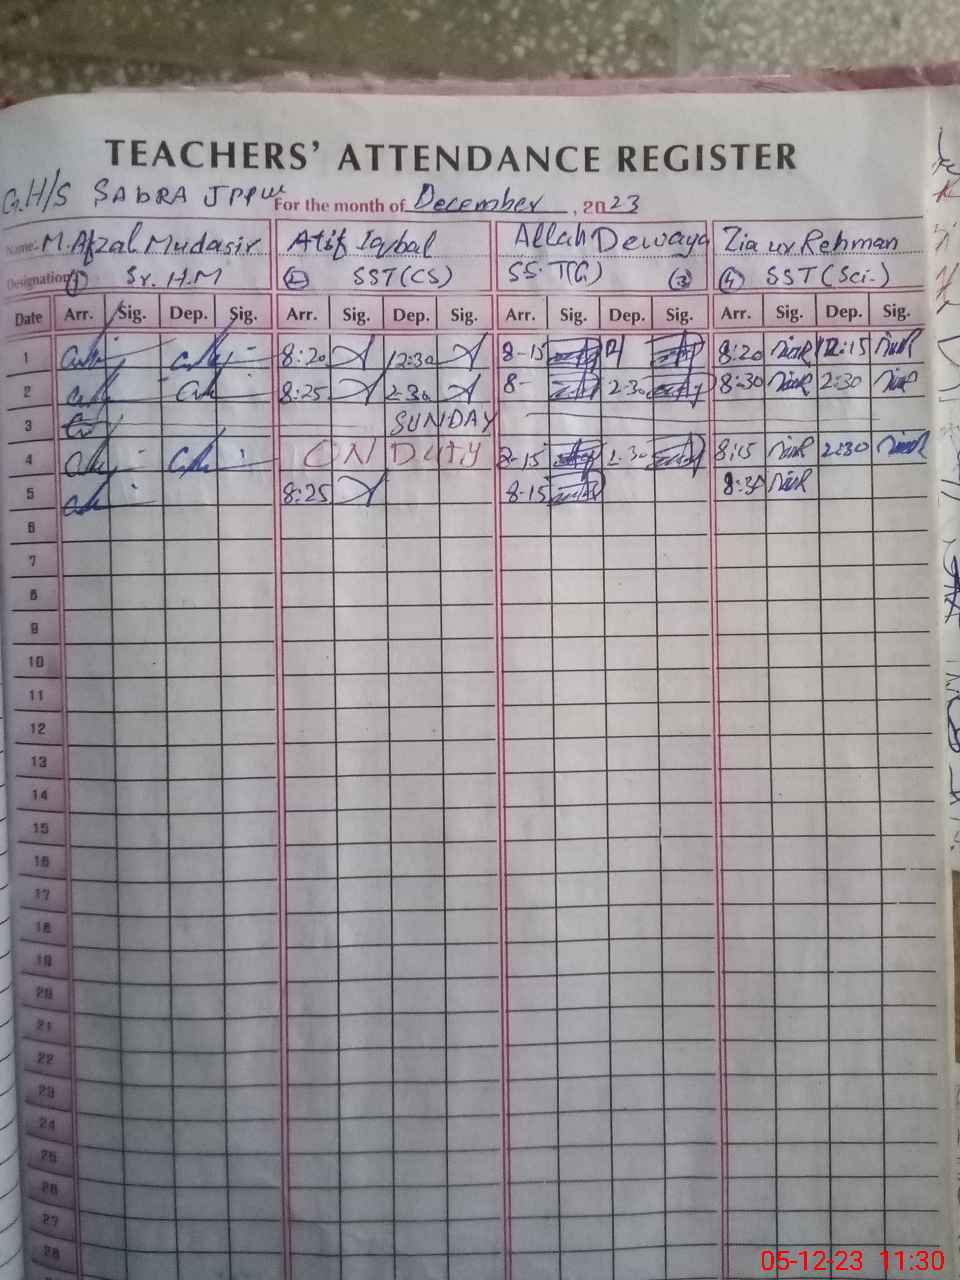 TEACHERS' ATTENDANCE REGISTER
G.H/S SABRA JPPW For the month of December, 2023
Name: M. Afzal Mudasir Atif Iqbal Allah Dewaya Zia ur Rehman
Designation ① Sr. H.M ② SST(CS) SS.T(G) ③ ④ SST (Sci.)
Date Arr. Sig. Dep. Sig. Arr. Sig. Dep. Sig. Arr. Sig. Dep. Sig. Arr. Sig. Dep. Sig.
1 8:20 12:30 8-15 12 8:20 12:15
2 8:25 2:30 8- 2-30 8:30 2:30
3 SUNDAY
4 ON DUTY 8-15 2-30 8:15 2:30
5 8:25 8-15 8:30
6
7
8
9
10
11
12
13
14
15
16
17
18
19
20
21
22
23
24
25
26
27
28
05-12-23 11:30